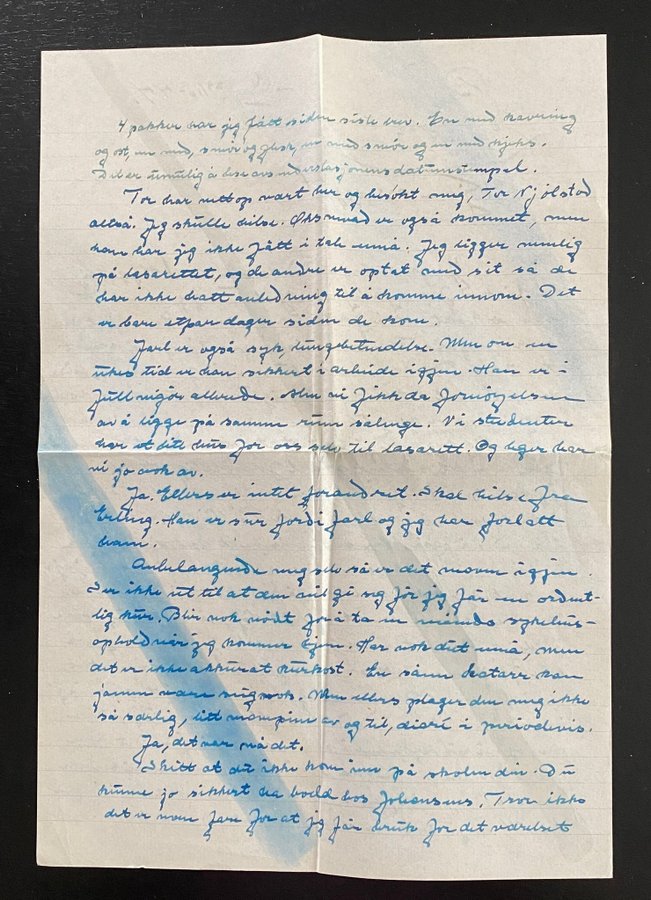 4 pakker har jeg fått siden siste brev. En med kavring
og ost, en med, smør og flesk, en med smør og en med kjeks.
Det er umulig å lese avsenderstasjonens datumstempel.
Tor har nettop vært her og besøkt meg, Tor Njølstad
altså. Jeg skulle hilse. Øksnevad er også kommet, men
ham har jeg ikke fått i tale ennå. Jeg ligger nemlig
på lasarettet, og de andre er optat med sit så de
har ikke hatt anledning til å komme innom. Det
er bare et par dager siden de kom.
Jarl er også syk, lungebetendelse. Men om en
ukes tid er han sikkert i arbeide igjen. Han er i
full vigør allerede. Men vi fikk da fornøyelsen
av å ligge på samme rum sålenge. Vi studenter
har et lite hus for oss selv til lasarett. Og leger har
vi jo nok av.
Ja. Ellers er intet forandret. Skal hilse fra
Erling. Han er sur fordi Jarl og jeg har forlatt
ham.
Anbelangende meg selv så er det maven igjen.
Ser ikke ut til at den vil gi sig før jeg får en ordent-
lig kur. Blir nok nødt for å ta en måneds sykehus-
ophold når jeg kommer hjem. Har nok diet ennå, men
det er ikke akkurat kurkost. En sånn katarr kan
jammen være seig nok. Men ellers plager den meg ikke
så særlig, litt mavepine av og til, diaré i periodevis.
Ja, det var nå det.
Skitt at du ikke kom inn på skolen din. Du
kunne jo sikkert ha bodd hos Johansens. Tror ikke
det er noen fare for at jeg får bruk for det værelset